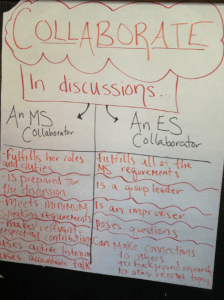 COLLABORATE
In discussions...
An MS
Collaborator
An ES
Collaborator
-Fulfills her roles
and duties
-is prepared for
the discussion
-meets minimum
requirements
-makes relevant
contributions
-uses active listening
-uses accountable talk
fulfills all of the
MS requirements
Is a group leader
Is an improviser
Poses questions
Can make connections
to others
to background research
to other topics